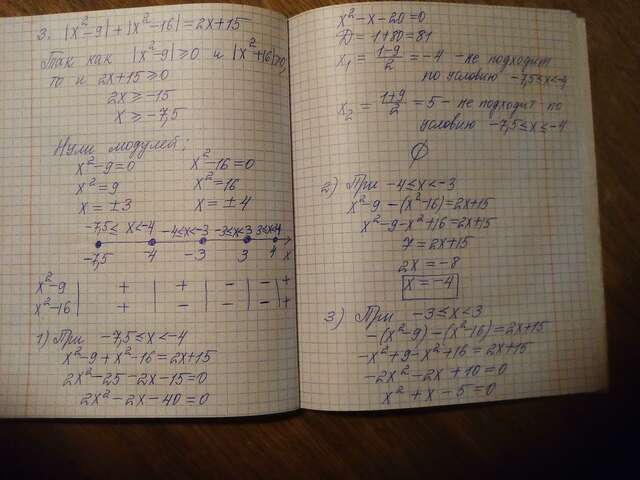 3. |x²-9|+|x²-16|=2x+15
Так как |x²-9|≥0 и |x²+16|≥0,
то и 2x+15≥0
2x≥-15
x≥-7,5
Нули модулей:
x²-9=0 x²-16=0
x²=9 x²=16
x=±3 x=±4
-7,5≤x<-4 -4≤x<-3 -3≤x<3 3≤x<4
-7,5 -4 -3 3 4 x
x²-9 | + | + | - | - | +
x²-16 | + | - | - | - | +
1) При -7,5≤x<-4
x²-9+x²-16=2x+15
2x²-25-2x-15=0
2x²-2x-40=0
x²-x-20=0
D=1+80=81
x₁=(1-9)/2=-4 -не подходит
по условию -7,5≤x<-4
x₂=(1+9)/2=5-не подходит по
условию -7,5≤x≤-4
∅
2) При -4≤x<-3
x²-9-(x²-16)=2x+15
x²-9-x²+16=2x+15
7=2x+15
2x=-8
x=-4
3) При -3≤x<3
-(x²-9)-(x²-16)=2x+15
-x²+9-x²+16=2x+15
-2x²-2x+10=0
x²+x-5=0